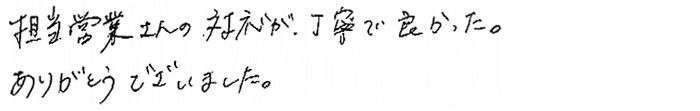 担当営業さんの対応が、丁寧で良かった。
ありがとうございました。